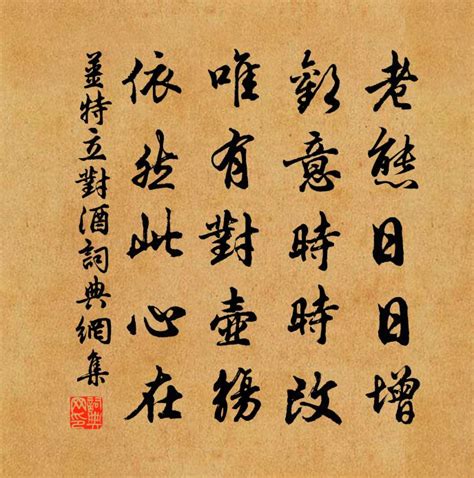 老態日日增
歡意時時改
唯有對壺觴
依然此心在
薑特立對酒詞典網集